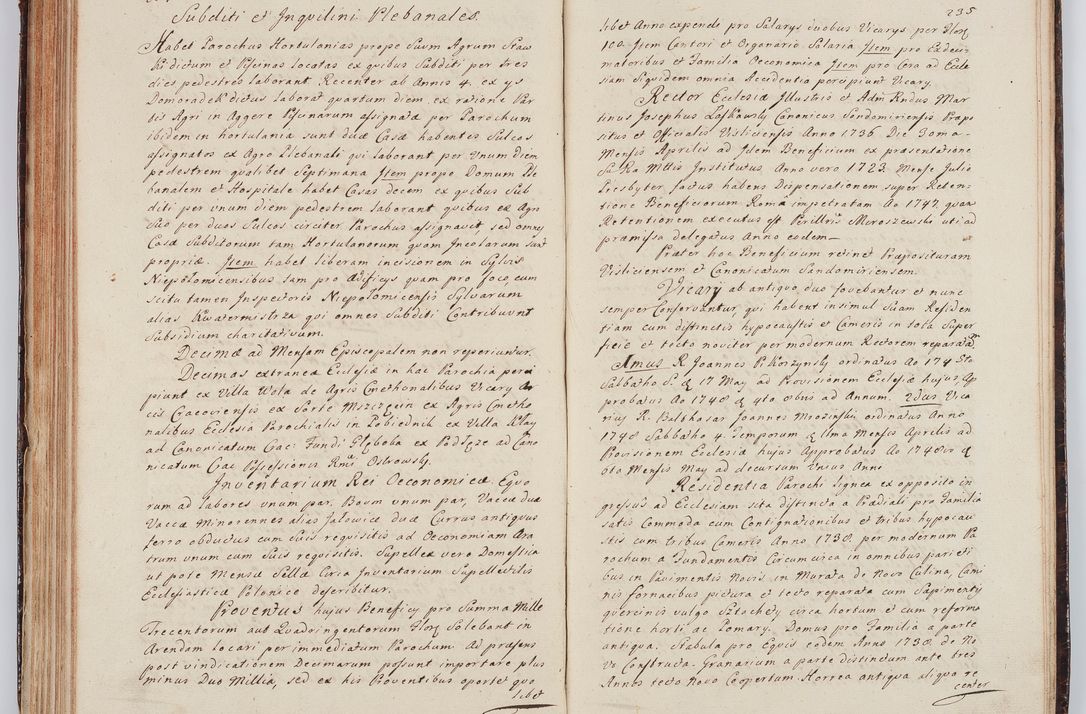 Subditi et Inquilini Plebanales.
Habet Parochus Hortulonias prope suum Agrum Staw
dictum et Piscinas locatas ex quibus Subditi per tres
dies pedestres laborant. Recenter ab Annis 4. ex ys
Domoradek dictus laborat quartum diem ex ratione Par
tis Agri in Aggere Piscinarum assignatæ per Parochum
ibidem in hortulania sunt duæ Casæ habentes Sulcos
assignatos ex Agro Plebanali qui laborant per Unum diem
pedestrem qualibet Septimana Item prope Domum Ple
banalem et Hospitale habet Casas decem ex quibus Sub
diti per unum diem pedestrem laborant quibus ex Agro
Suo per duas Sulcos circiter Parochus assignavit, sed omnes
Casæ Subditorum tam Hortulanorum quam Incolarum sunt
propriæ. Item habet liberam incisionem in Sylvis
Niepolomicensibus tam pro ædificys quam pro foco, cum
scitu tamen Inspectoris Niepolomicensis Sylvarum
alias Kwatermistrza qui omnes Subditi Contribuunt
Subsidium charitativum.
Decimæ ad Mensam Episcopalem non reperiuntur.
Decimas extraneæ Ecclesiæ in hac Parochia perci
piunt ex Villa Wola de Agris Cmethonalibus Vicary Ar
cis Cracoviensis ex Sorte Mszczęcin ex Agris Cmetho
nalibus Ecclesia Parochialis in Pobiednik ex Villa Wtay
ad Canonicatum Crac: Fundi Głęboka ex Padłęże ad Cano
nicatum Crac Possessionis Rmi Ostrowsky.
Inventarium Rei Oeconomicæ. Equo
rum ad labores unum par, Boum unum par, Vaccæ duæ
Vaccæ Minorennes alias Jałowice duæ Currus antiquus
ferro obductus cum Suis requisitis ad Oeconomiam Ara
trum unum cum Suis requisitis. Supellex vero Domestica
ut pote Mensæ Sellæ Circa Inventarium Supellectilis
Ecclesiasticæ Polonice describitur.
Proventus hujus Beneficy pro Summa Mille
Trecentorum aut Quadringentorum Flor Solebant in
Arendam locari per immediatum Parochum. Ad præsens
post vindicationem Decimarum possunt importare plus
minus Duo Millia, sed ex his Proventibus oportet quo
libet
235
libet Anno expende pro Salarys duobus Vicarys per Flor
100. Item Cantori et Organario Salaria Item pro Exdeci
matoribus et Familia Oeconomica Item pro Cera ad Eccle
siam Siquidem omnia Accidentia percipiunt Vicary.
Rector Ecclesiæ Illustris et Adm Rndus Mar
tinus Josephus Łosskowsky Canonicus Sandomiriensis Præpo
situs et Officialis Visliciensis Anno 1736 Die 30ma
Mensis Aprilis ad Idem Beneficium ex præsentatione
Sæ Ræ Mttis Institutus. Anno vero 1723. Mense Julio
Presbyter factus habens Dispensationem super Reten-
tione Beneficiorum Romæ impetratam Ao 1747 quam
Retentionem executus est Perillris Moroszewski uti ad
præmissa delegatus Anno eodem
Præter hoc Beneficium retinet Præposituram
Visliciensem et Canonicatum Sandomiriensem.
Vicary ab antiquo duo fovebantur et nunc
semper Conservantur, qui habent insimul Suam Residen
tiam cum distinctis hypocaustis et Cameris in tota Super
ficie et tecto noviter per modernum Rectorem reparatam
1mus R. Joannes Pikorzynsky ordinatus Ao 174 Sto
Sabbatho S. d 17 May ad Provisionem Ecclesiæ hujus, Ap
probatus Ao 1748 d 4ta 8bris ad Annum. 2dus Vica
rius R. Balthasar Joannes Mrozinski, ordinatus Anno
1748 Sabbatho 4 Temporum d 11ma Mensis Aprilis ad
Provisionem Ecclesiæ hujus Approbatus Ao 1748vo d
6to Mensis May ad decursum Unius Anni
Residentia Parochi lignea ex opposito in
gressus ad Ecclesiam sita distincta a Prædiali pro Familia
satis Commoda cum Contignationibus et tribus hypocau
stis cum tribus Cameris Anno 1730. per modernum Pa
rochum a Fundamentis Circumcirca in omnibus pariети
bus, in Pavimentis Novis, in Murata de Novo Culina, Cami
nis fornacibus pictura et tecto reparata cum Sapimentis
quercinis vulgo Sztachety circa hortum et cum reforma
tione horti ac Pomary. Domus pro Familia a parte
antiqua. Stabula pro Equis eodem Anno 1730. de No
vo Constructa. Granarium a parte distinctum ante tres
Annos tecto novo Coopertum. Horrea antiqua aliqua re
center